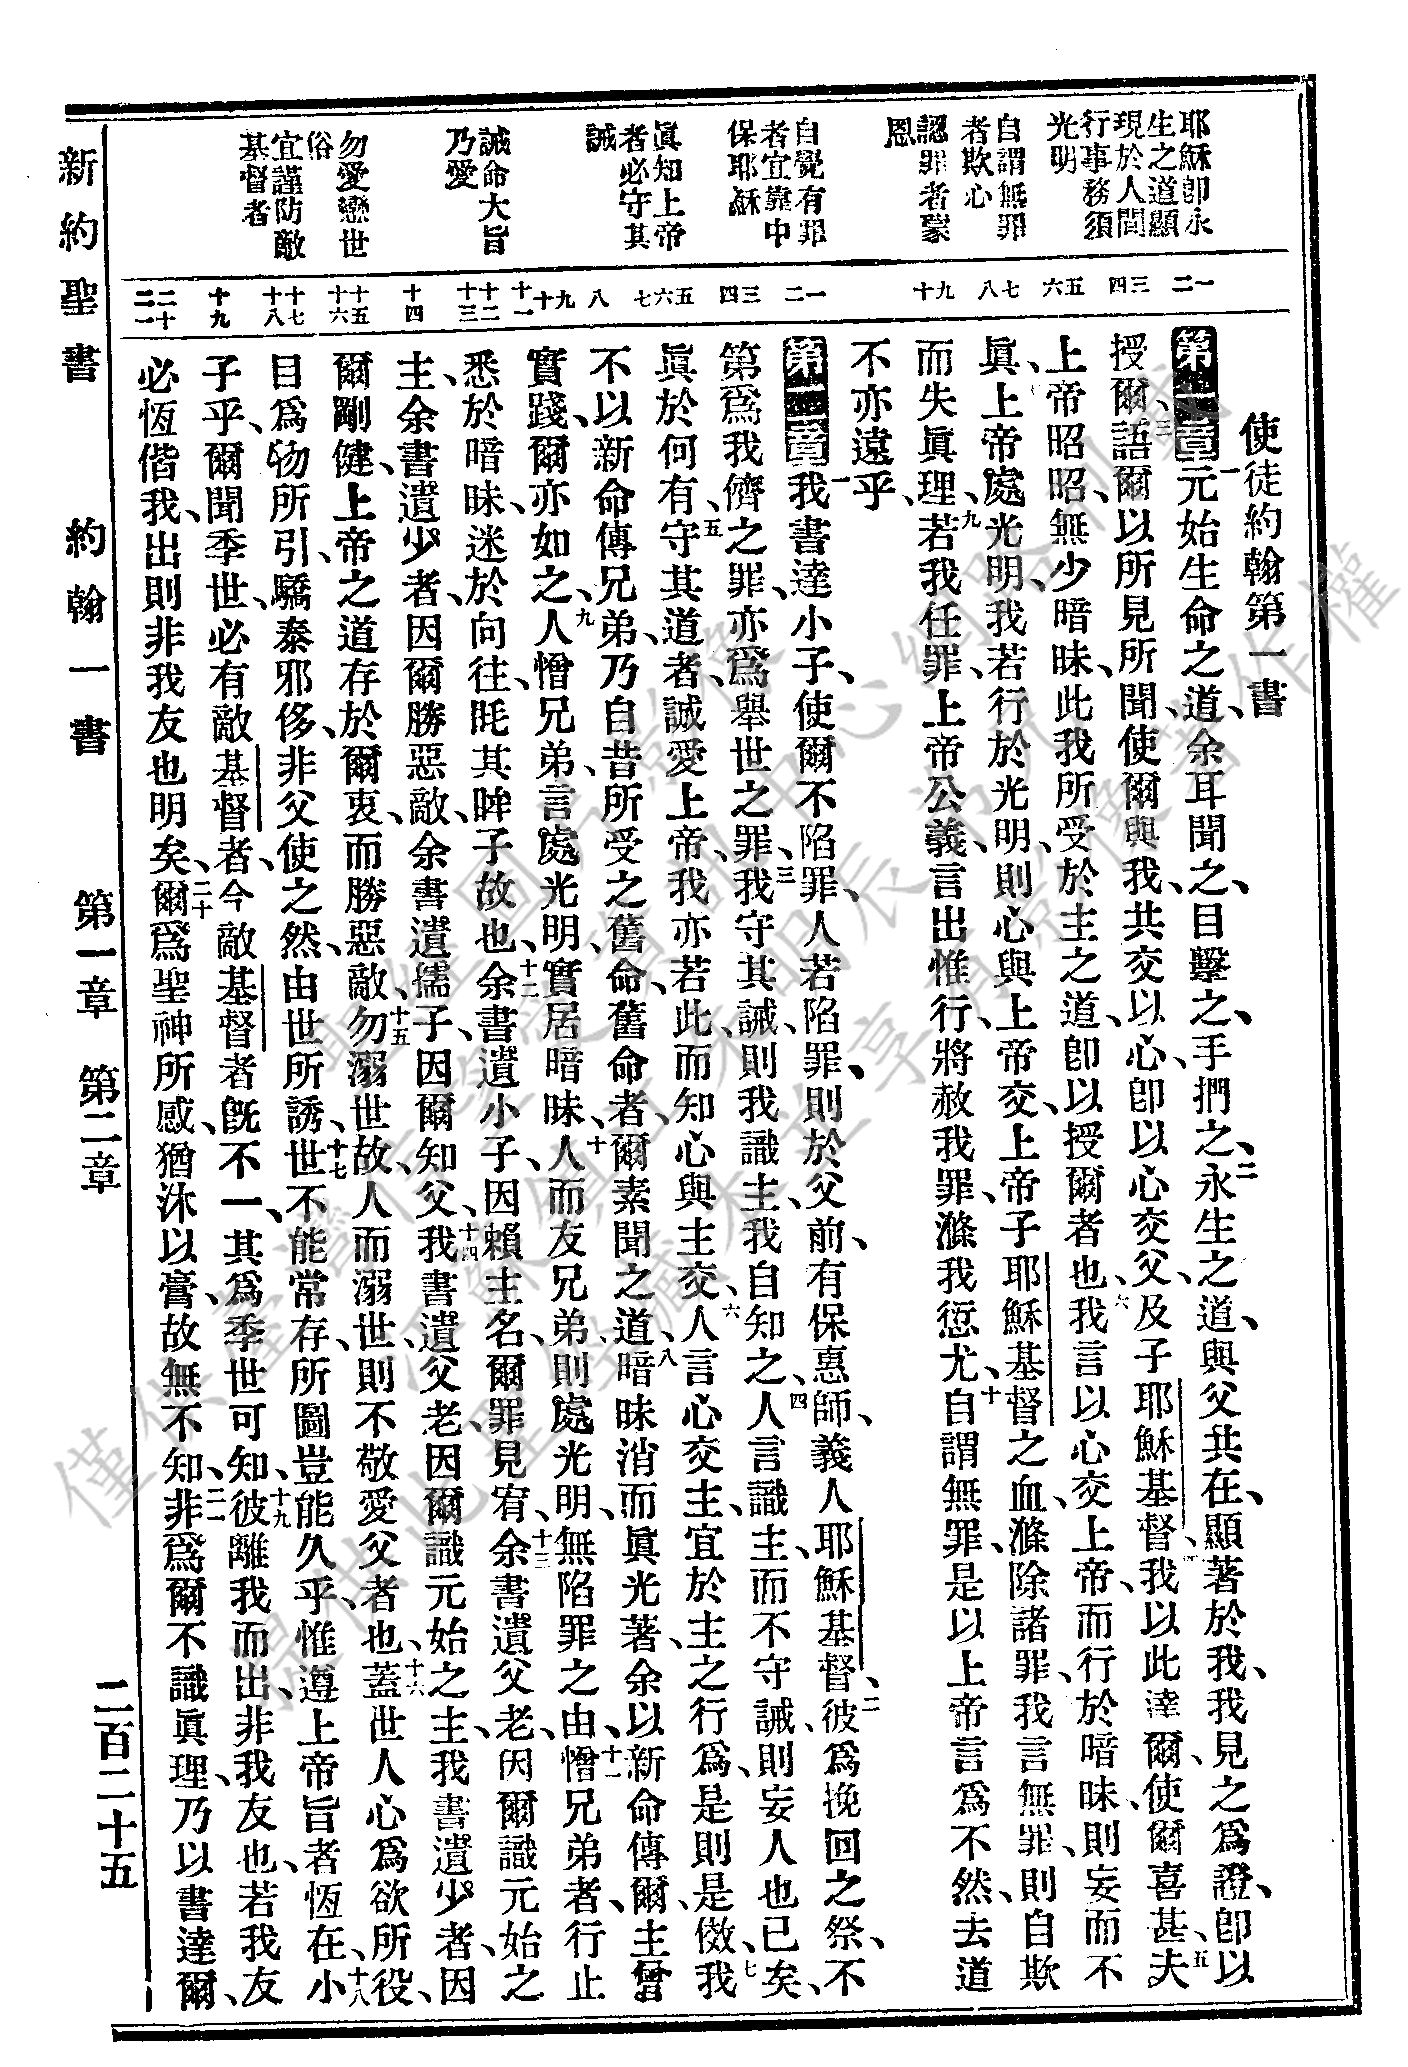 耶穌卽永
生之道顯
現於人間
行事務須
光明
自謂無罪
者欺心
認罪者蒙
恩
自覺有罪
者宜靠中
保耶穌
眞知上帝
者必守其
誡
誡命大旨
乃愛
勿愛戀世
俗
宜謹防敵
基督者
一二 三四 五六 七八 九十 一二 三四 五六七 八 九十 十一 十二十三 十四 十五十六 十七十八 十九 二十二一
使徒約翰第一書
第一章一元始生命之道、余耳聞之、目擊之、手捫之、二永生之道、與父共在、顯著於我、我見之爲證、卽以
授爾、三語爾以所見所聞、使爾與我、共交以心、卽以心交父、及子耶穌基督、四我以此達爾、使爾喜甚、五夫
上帝昭昭、無少暗昧、此我所受於主之道、卽以授爾者也、六我言以心交上帝、而行於暗昧、則妄而不
眞、七上帝處光明、我若行於光明、則心與上帝交、上帝子耶穌基督之血、滌除諸罪、八我言無罪、則自欺
而失眞理、九若我任罪、上帝公義、言出惟行、將赦我罪、滌我愆尤、十自謂無罪、是以上帝言爲不然、去道
不亦遠乎、
第二章一我書達小子、使爾不陷罪、人若陷罪、則於父前、有保惠師、義人耶穌基督、二彼爲挽回之祭、不
第爲我儕之罪、亦爲舉世之罪、三我守其誡、則我識主、我自知之、四人言識主、而不守誡、則妄人也已矣、
眞於何有、五守其道者、誠愛上帝、我亦若此、而知心與主交、六人言心交主、宜於主之行爲、是則是傚、七我
不以新命傳兄弟、乃自昔所受之舊命、舊命者、爾素聞之道、八暗昧消而眞光著、余以新命傳爾、主曾
實踐、爾亦如之、九人憎兄弟、言處光明、實居暗昧、十人而友兄弟、則處光明、無陷罪之由、十一憎兄弟者、行止
悉於暗昧、迷於向往、眊其眸子故也、十二余書遺小子、因賴主名、爾罪見宥、十三余書遺父老、因爾識元始之
主、余書遺少者、因爾勝惡敵、余書遺孺子、因爾知父、十四我書遺父老、因爾識元始之主、我書遺少者、因
爾剛健、上帝之道存於爾衷、而勝惡敵、十五勿溺世故、人而溺世、則不敬愛父者也、十六蓋世人心爲欲所役、
目爲物所引、驕泰邪侈、非父使之然、由世所誘、十七世不能常存、所圖豈能久乎、惟遵上帝旨者恆在、十八小
子乎、爾聞季世、必有敵基督者、今敵基督者旣不一、其爲季世可知、十九彼離我而出、非我友也、若我友
必恆偕我、出則非我友也明矣、二十爾爲聖神所感、猶沐以膏、故無不知、二一非爲爾不識眞理、乃以書達爾、
新約聖書 約翰一書 第一章 第二章 二百二十五
僅供